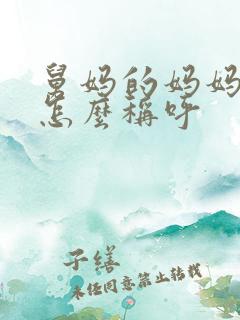 舅妈的妈妈
怎麽稱呼
子缮
未经同意禁止转载